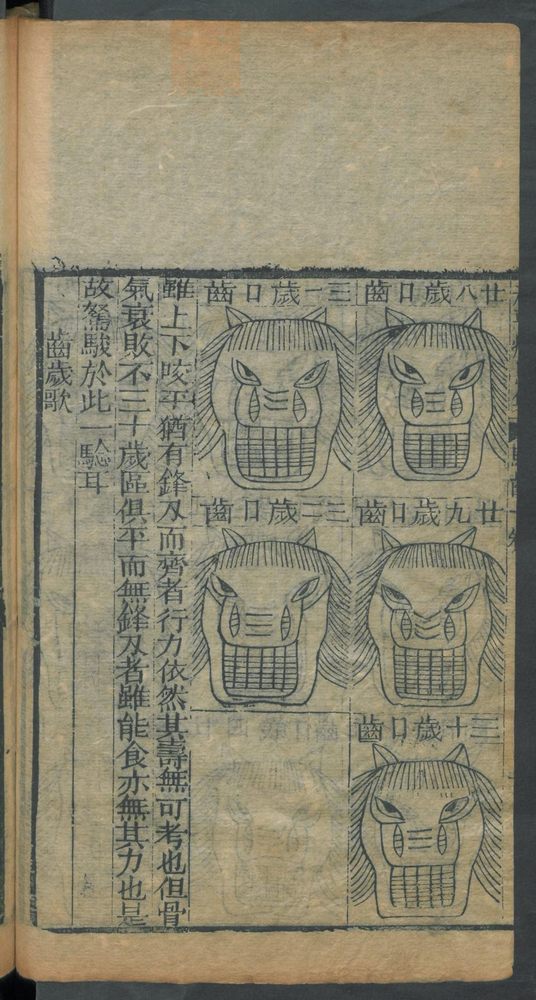 廿八歲口齒
廿九歲口齒
三十歲口齒
三一歲口齒
三二歲口齒
雖上下咬平猶有鋒刃而齊者行力依然其壽無可考也但骨
氣衰敗不三十歲區俱平而無鋒刃者雖能食亦無其力也是
故駑駿於此一驗耳
齒歲歌